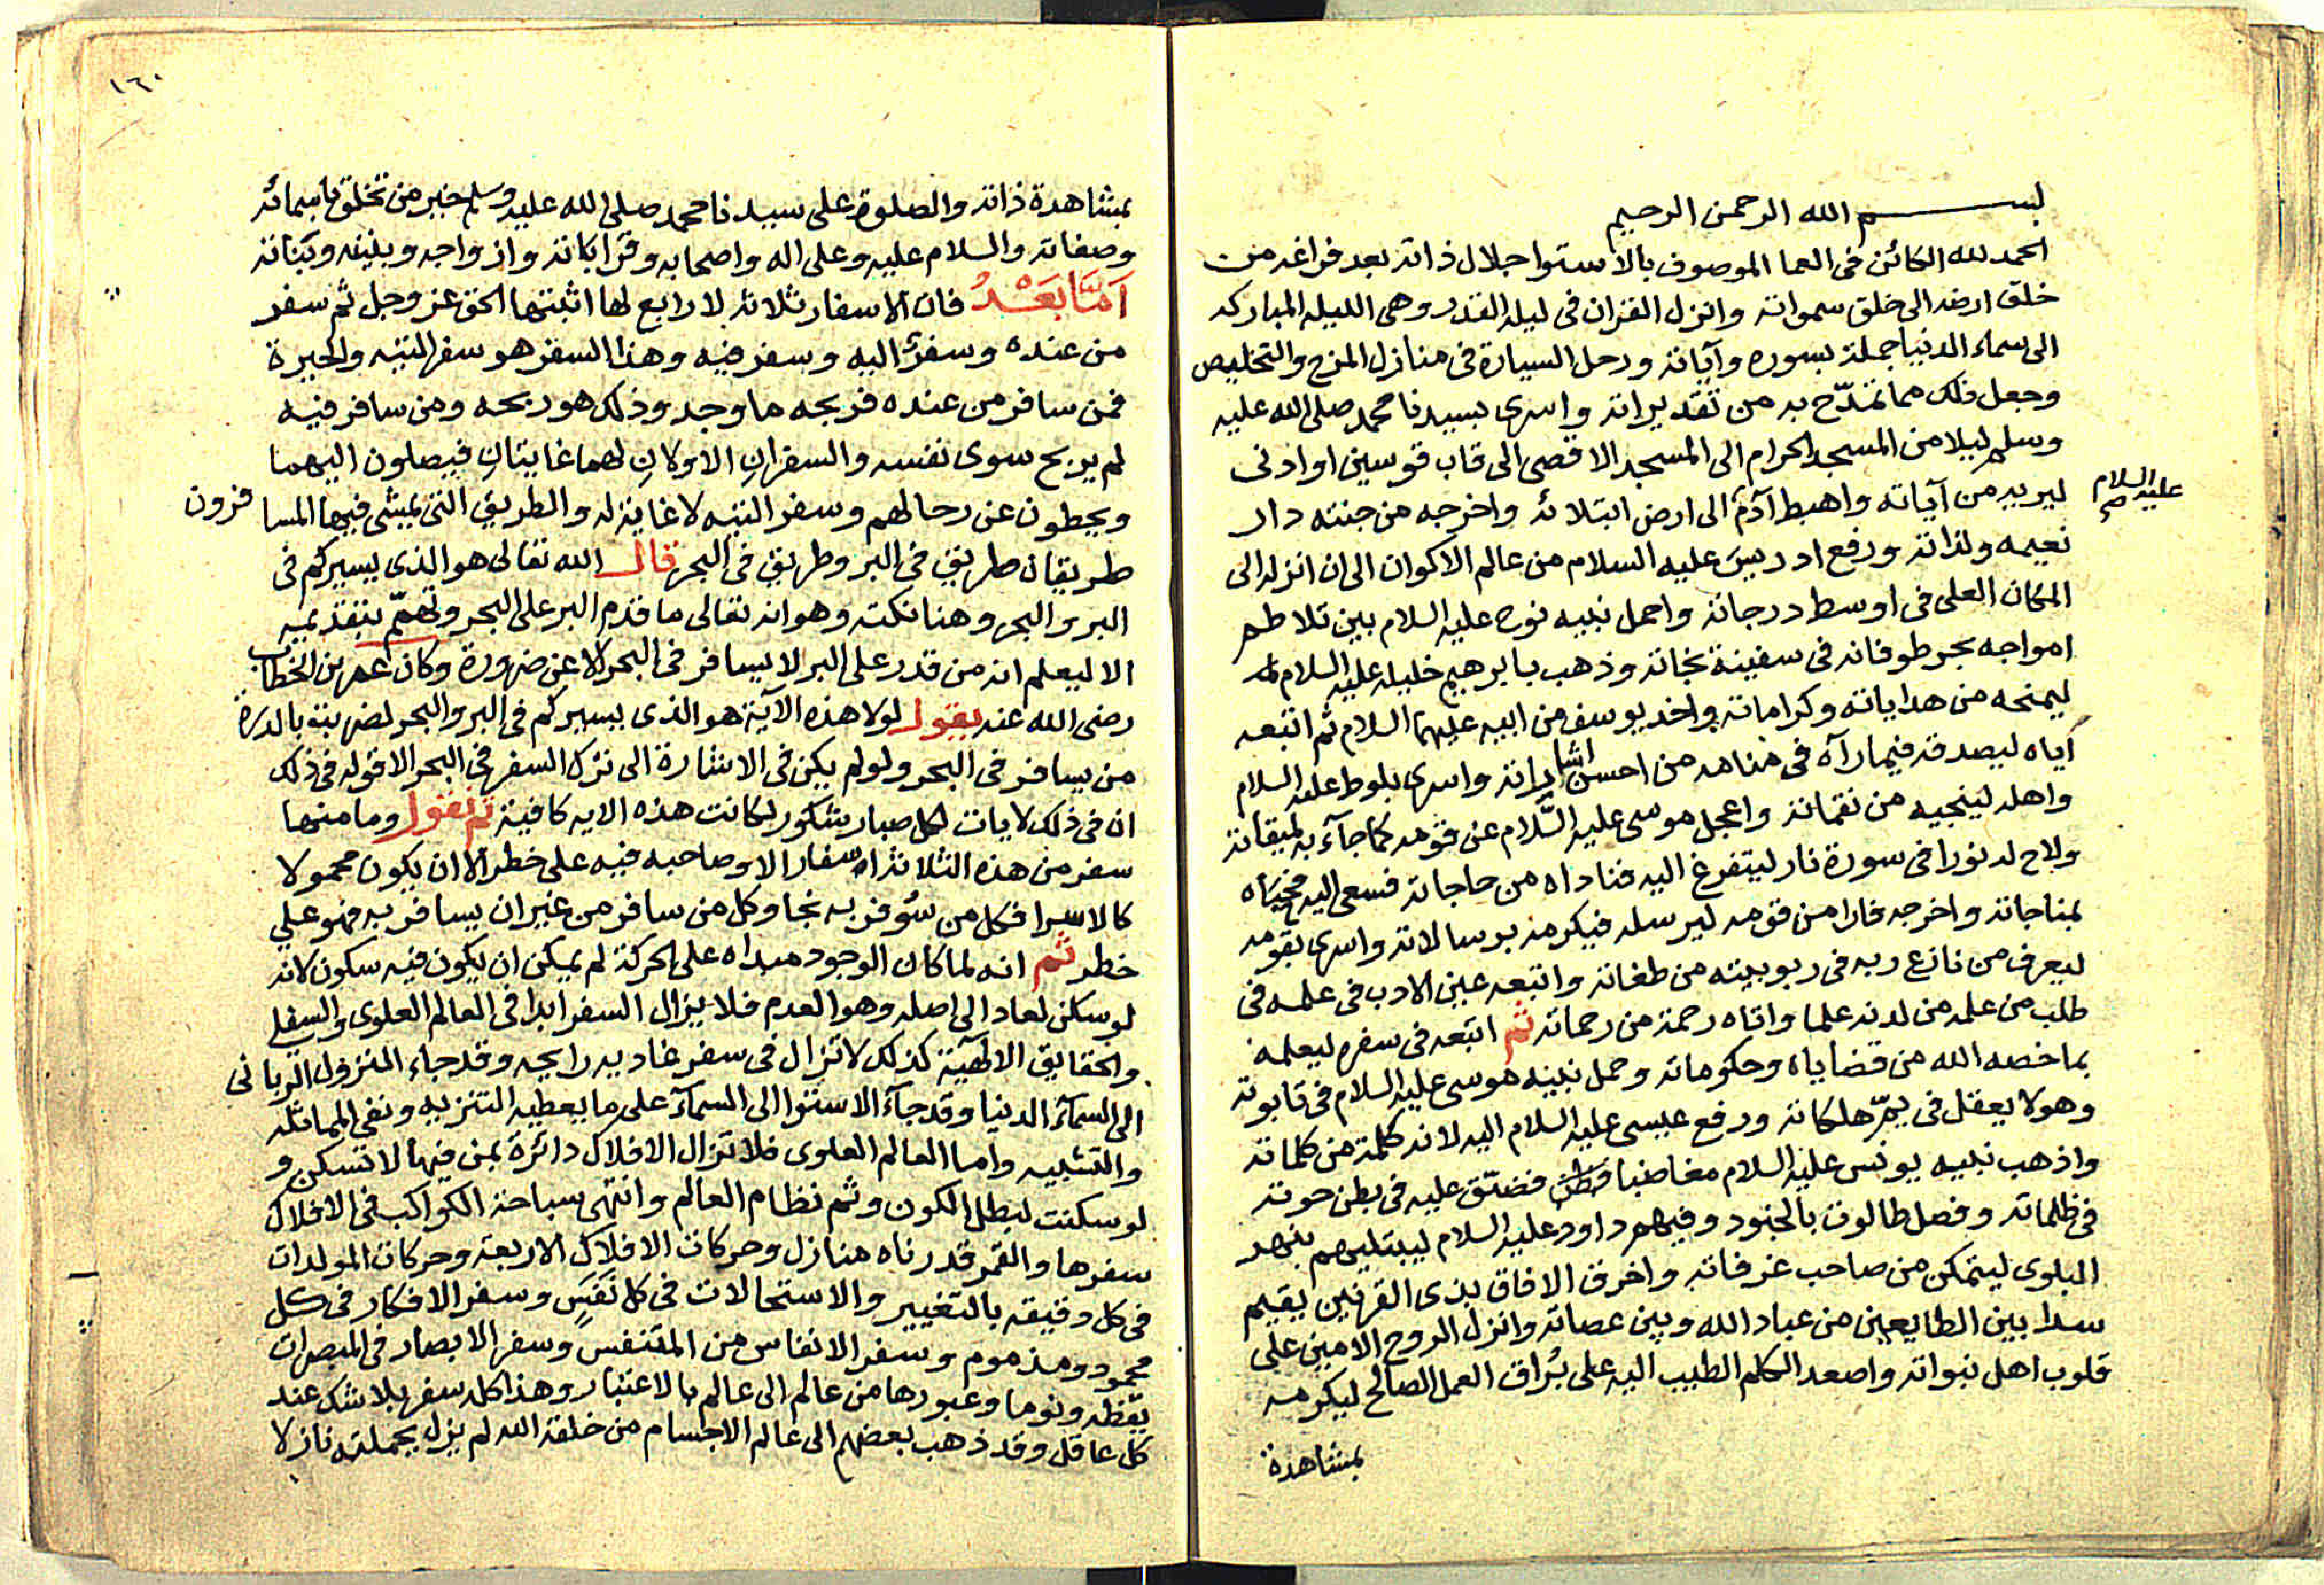 بسم الله الرحمن الرحيم
الحمد لله الكائن فى العما الموصوف بالاستوا جلال ذاته بعد فراغه من
خلق ارضه الى خلق سمواته وانزل القران فى ليلة القدر وهى الليلة المباركه
الى سماء الدنيا جملة بسوره وآياته ورحل السيارة فى منازل المزج والتخليص
وجعل ذلك مما تمدّح به من تقديراته واسرى بسيدنا محمد صلى الله عليه
وسلم ليلا من المسجد الحرام الى المسجد الاقصى الى قاب قوسين او ادنى
ليريه من آياته واهبط آدم الى ارض ابتلائه واخرجه من جنته دار
عليه السلام صح
نعيمه ولذاته ورفع ادريس عليه السلام من عالم الاكوان الى ان انزله الى
المكان العلى فى اوسط درجاته واحمل نبيه نوح عليه السلام بين تلاطم
امواجه بحر طوفانه فى سفينة نجاته وذهب بابرهيم خليله عليه السلام
ليمنحه من هداياته وكراماته واخذ يوسف من ابيه عليهما السلام ثم اتبعه
أياه ليصدقه فيما رآه فى منامه من احسن اشاراته واسرى بلوط عليه السلام
واهله لينجيه من نقماته واعجل موسى عليه السّلام عن قومه كما جآء به لميقاته
ولاح له نورا فى سورة نار ليتفرغ اليه فناداه من حاجاته فسعى اليه فحيّاه
بمناجاته واخرجه فارا من قومه ليرسله فيكرمه برسالاته واسرى بقومه
ليعرف من نازع ربه فى ربوبيته من طغاته واتبعه عين الادب فى علمه فى
طلب من علمه من لدنه علما واتاه رحمة من رحماته ثم اتبعه فى سفره ليعلمه
بما خصه الله من قضاياه وحكوماته وحمل نبيه موسى عليه السلام فى تابوته
وهو لا يعقل فى يمّ هلكاته ورفع عيسى عليه السلام اليه لانه كلمة من كلماته
واذهب نبيه يونس عليه السلام مغاضبا فظن فضيّق عليه فى بطن حوته
فى ظلماته وفصل طالوت بالجنود وفيهم داود عليه السلام ليبتليهم بنهر
البلوى ليتمكن من صاحب غرفاته واخرق الافاق بذى القرنين يقيم
سدا بين الطايعين من عباد الله وبين عصاته وانزل الروح الامين على
قلوب اهل نبواته واصعد الكلم الطيب اليه على بُراق العمل الصالح ليكرمه
بمشاهدة
١٦٠
بمشاهدة ذاته والصلوة على سيدنا محمد صلى الله عليه وسلم خير من تخلق باسمائه
وصفاته والسلام عليه وعلى اله واصحابه وقراباته وازواجه وبنيه وبناته
اَمَّا بَعْدُ فان الاسفار ثلاثه لا رابع لها اثبتها الحق عز وجل ثم سفر
من عنده وسفر اليه وسفر فيه وهذا السفر هو سفر التيه والحيرة
فمن سافر من عنده فربحه ما وجد وذلك هو ربحه ومن سافر فيه
لم يربح سوى نفسه والسفران الاولان لهما غايتان فيصلون اليهما
ويحطون عن رحالهم وسفر التيه لا غاية له والطريق التى يمشى فيها المسافرون
طريقان طريق فى البر وطريق فى البحر قال الله تعالى هو الذى يسيركم فى
البر والبحر وهنا نكتة وهو انه تعالى ما قدم البر على البحر وتهمّم بتقديمه
الا ليعلم انه من قدر على البر لا يسافر فى البحر الا عن ضرورة وكان عمر بن الخطاب
رضى الله عنه يقول لولا هذه الآية هو الذى يسيركم فى البر والبحر لضربت بالدرة
من يسافر فى البحر ولو لم يكن فى الاشارة الى ترك السفر فى البحر الا قوله فى ذلك
ان فى ذلك لايات لكل صبار شكور لكانت هذه الايه كافية ثم نقول وما منها
سفر من هذه الثلاثة الاسفار الا وصاحبه فيه على خطر الا ان يكون محمولا
كالاسرا فكل من سُوفر به نجا وكل من سافر من غير ان يسافر به فهو على
خطر ثم انه لما كان الوجود مبداه على الحركة لم يمكن ان يكون فيه سكون لانه
لو سكن لعاد الى اصله وهو العدم فلا يزال السفر ابدا فى العالم العلوى والسفلى
والحقايق الالهيّة كذلك لا تزال فى سفر غاديه رايحه وقد جاء النزول الربانى
الى السمآء الدنيا وقد جآء الاستوا الى السمآء على ما يعطيه التنزيه ونفى المماثله
والتشبيه واما العالم العلوى فلا تزال الافلاك دائرة بمن فيها لا تسكن و
لو سكنت لبطل الكون وثم نظام العالم وانتهى سباحة الكواكب فى الافلاك
سفرها والقمر قدرناه منازل وحركات الافلاك الاربعة وحركات المولدات
فى كل دقيقه بالتغيير والاستحالات فى كل نَفَسٍ وسفر الافكار فى كل
محمود ومذموم وسفر الانفاس من المتنفس وسفر الابصار فى المبصرات
يقظه ونوما وعبورها من عالم الى عالم بالاعتبار وهذا كله سفر بلا شك عند
كل عاقل وقد ذهب بعضهم الى عالم الاجسام من خلقه الله لم يزل بجملته نازلا